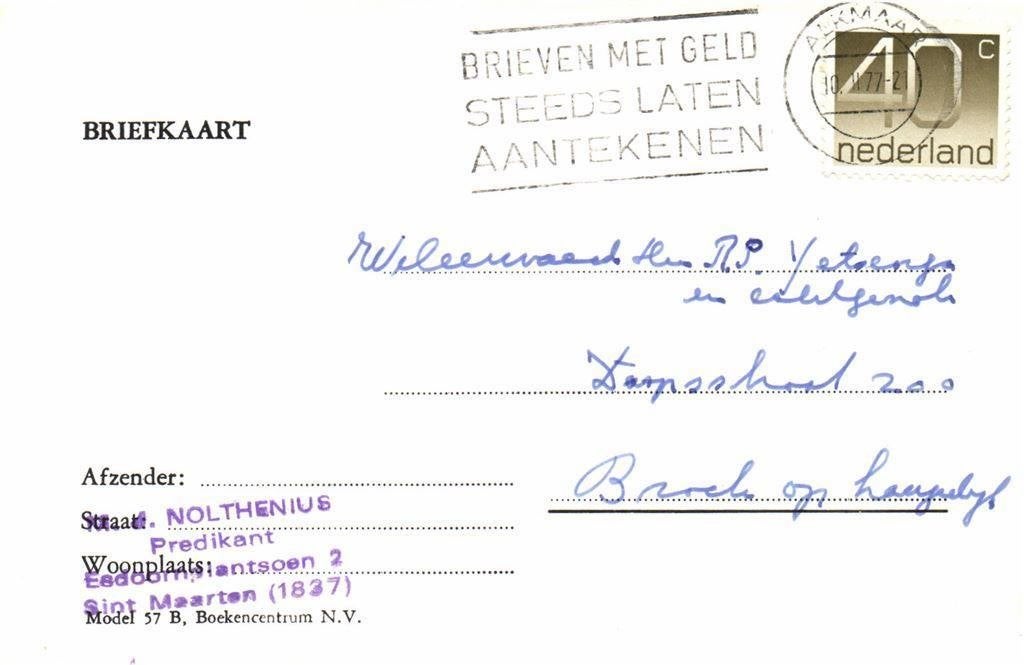 BRIEFKAART
BRIEVEN MET GELD
STEEDS LATEN
AANTEKENEN
ALKMAAR
40 c
nederland
Weleerwaard Heer R.P. Yetsenga
en echtgenote
Dorpsstraat 200
Broek op Langedijk
Afzender:
Straat:
Woonplaats:
NOLTHENIUS
Predikant
Esdoornplantsoen 2
Sint Maarten (1837)
Model 57 B, Boekencentrum N.V.